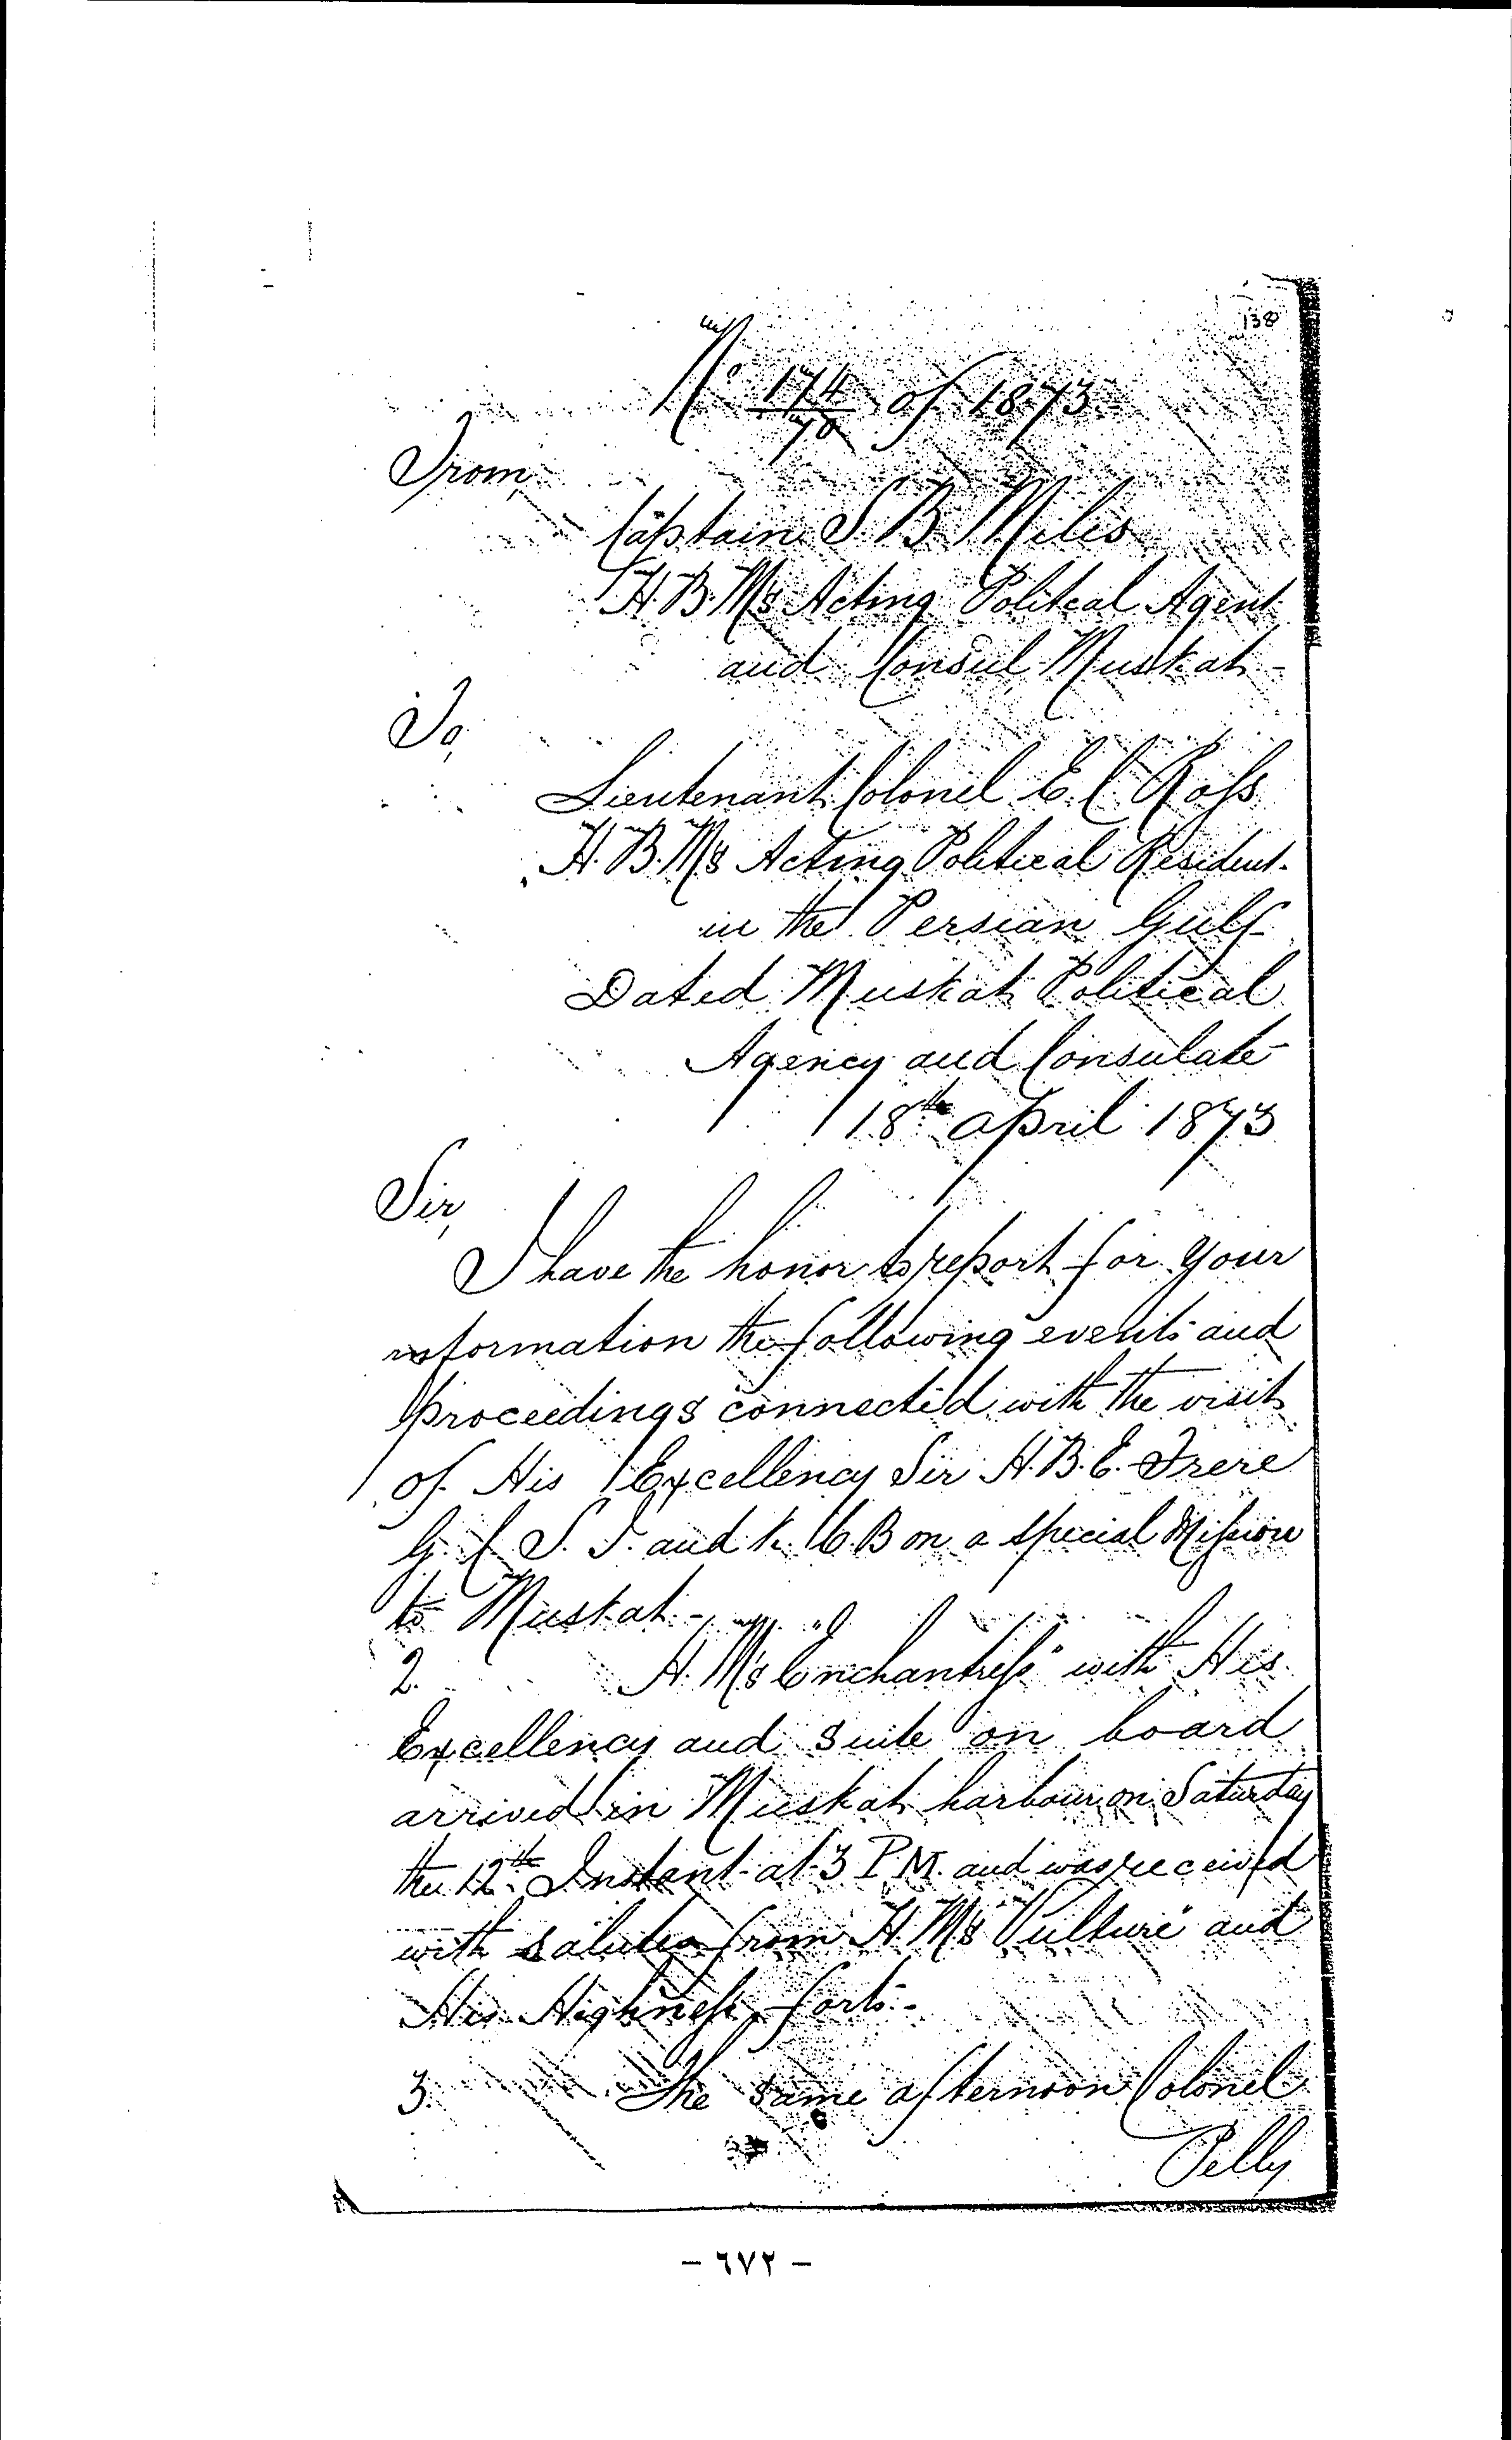 138
No 174/70 of 1873
From,
Captain S B Miles
H.B.M's Acting Political Agent
and Consul Muskat -
To,
Lieutenant Colonel E. C Ross
H.B.M's Acting Political Resident
in the Persian Gulf
Dated Muskat Political
Agency and Consulate
18th April 1873
Sir,
I have the honor to report for your
information the following events and
proceedings connected with the visit
of His Excellency Sir H.B.E. Frere
G. C S. I. and K. C B on a special Mission
to Muskat -
2. H. M's "Enchantress" with His
Excellency and suite on board
arrived in Muskat harbour on Saturday
the 12th Instant at 3 P.M. and was received
with salutes from H. M's "Vulture" and
His Highness, forts -
3. The same afternoon Colonel
Pelly
- ٦٧٢ -